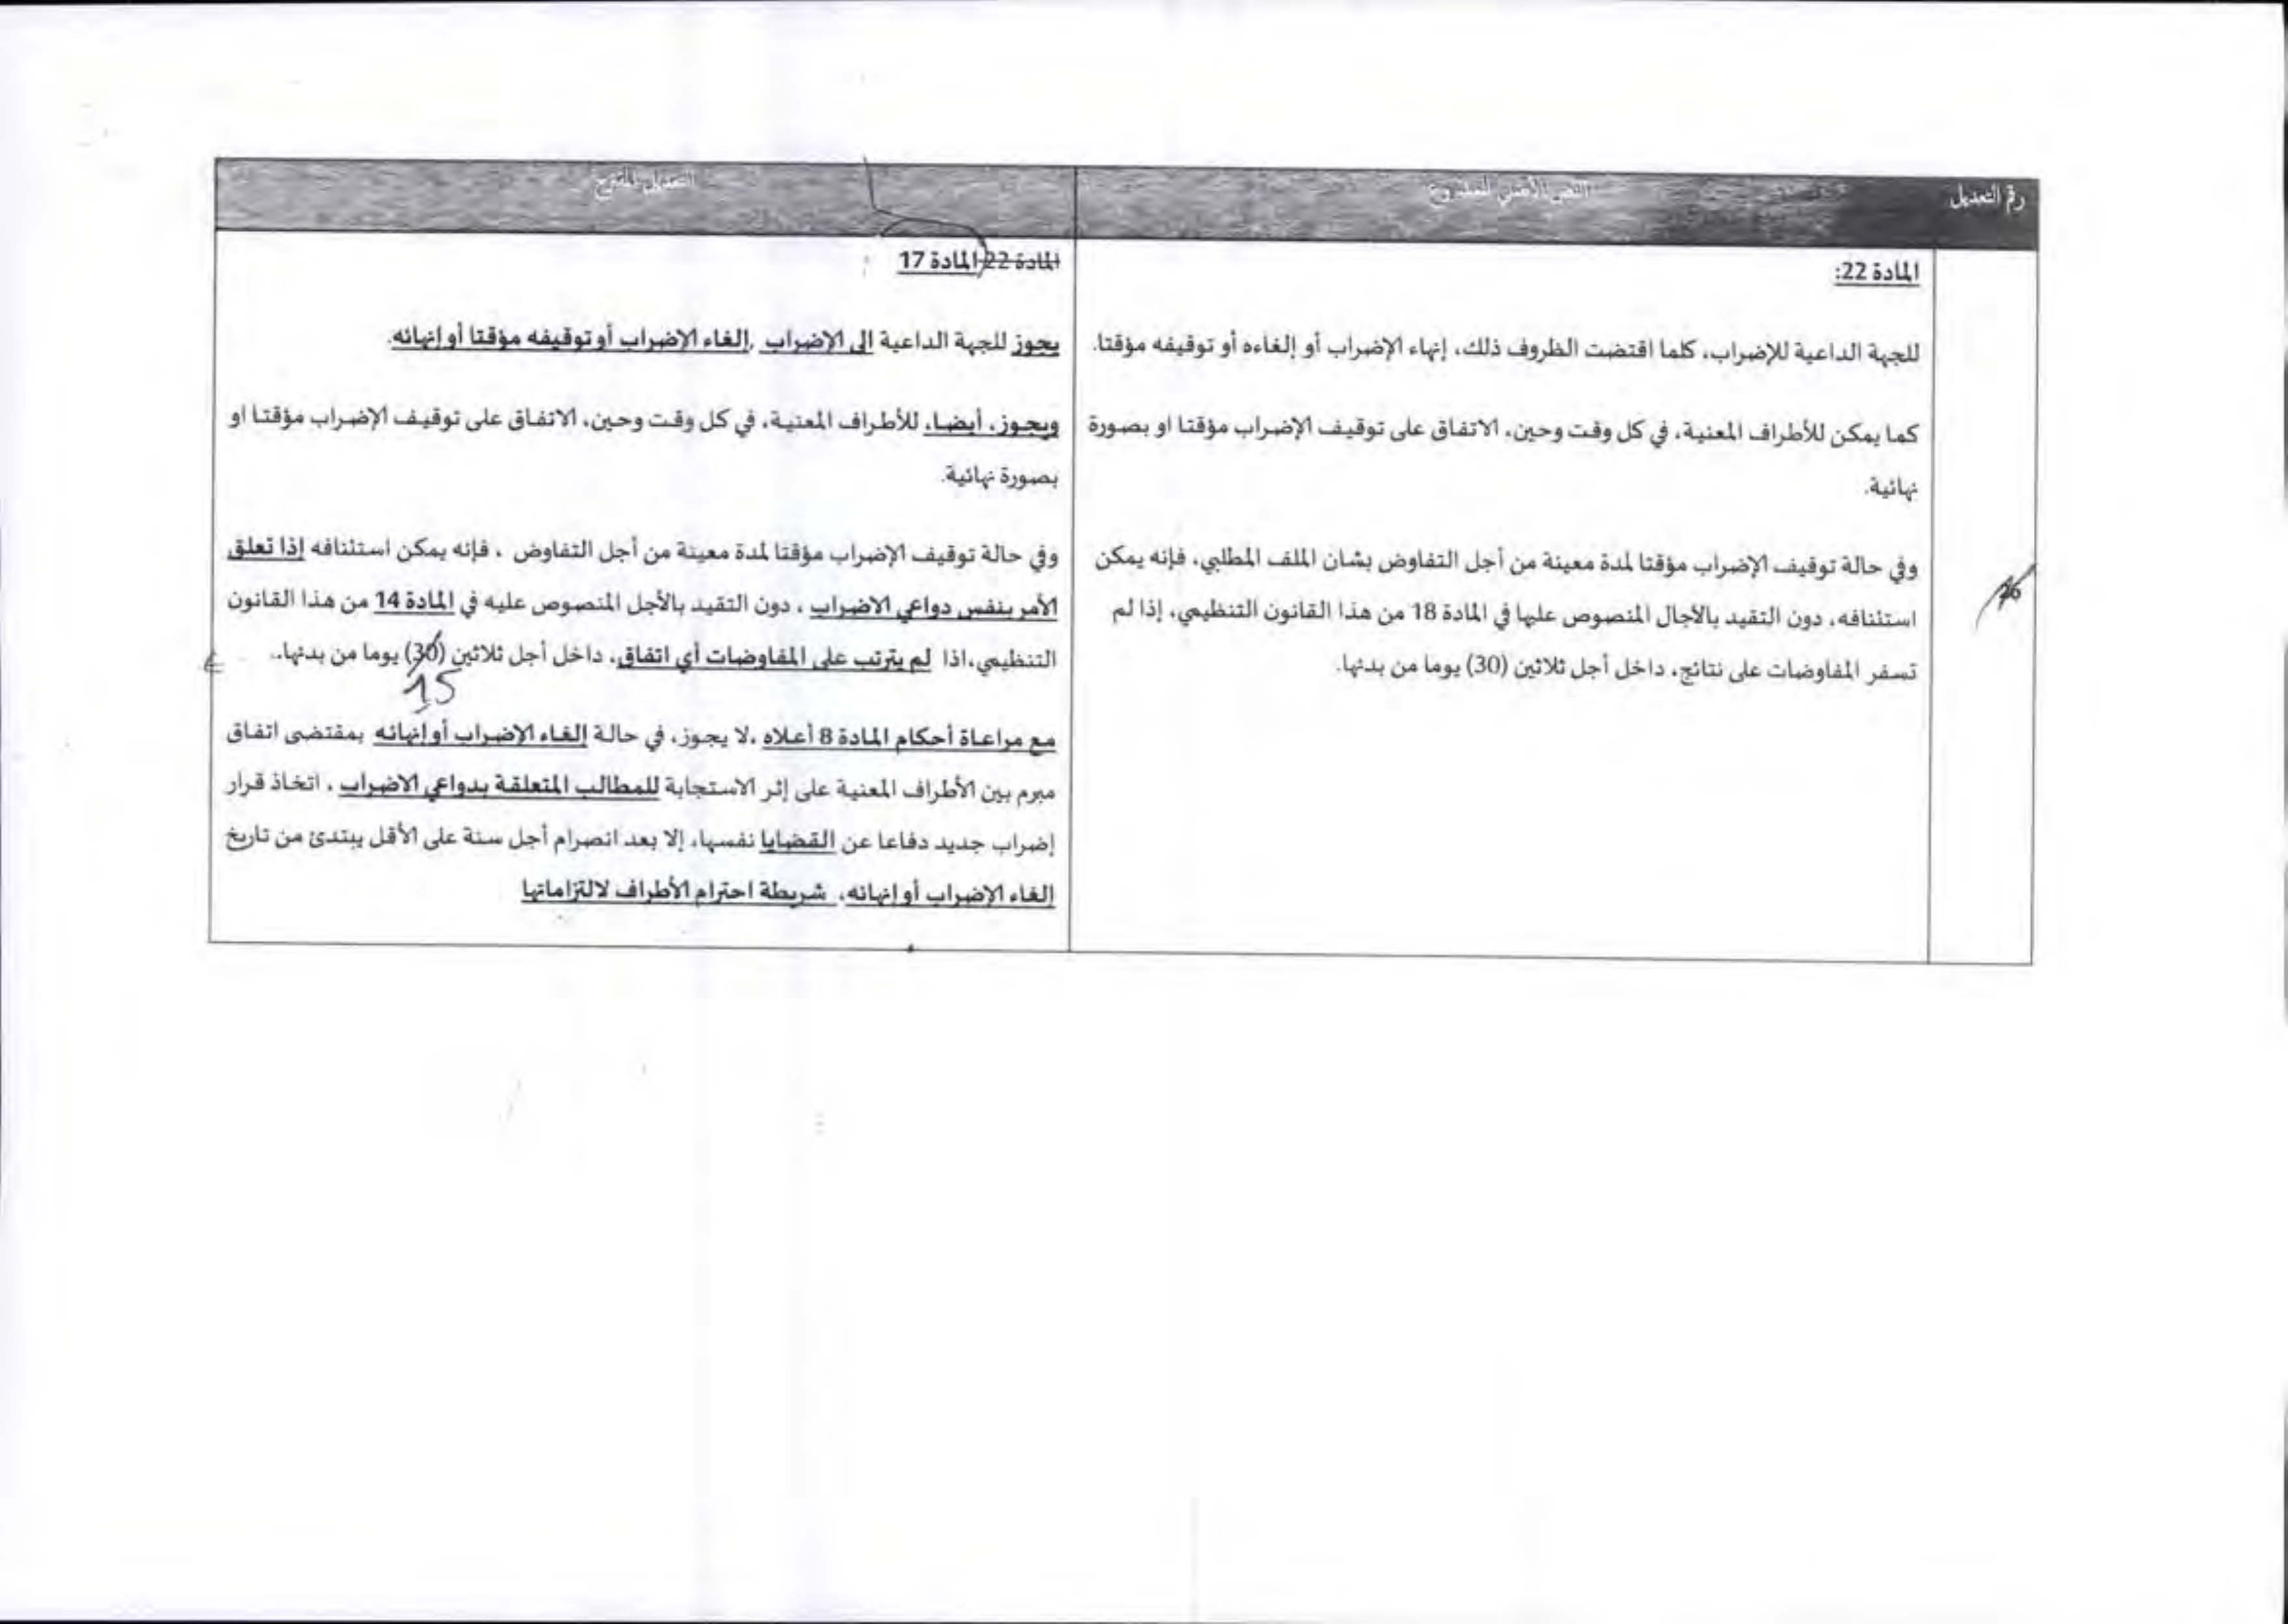 رقم التعديل
النص الأصلي للمشروع
التعديل المقترح
المادة 22:
للجهة الداعية للإضراب، كلما اقتضت الظروف ذلك، إنهاء الإضراب أو إلغاءه أو توقيفه مؤقتا.
كما يمكن للأطراف المعنية، في كل وقت وحين، الاتفاق على توقيف الإضراب مؤقتا او بصورة
نهائية.
وفي حالة توقيف الإضراب مؤقتا لمدة معينة من أجل التفاوض بشان الملف المطلبي، فإنه يمكن
استئنافه، دون التقيد بالآجال المنصوص عليها في المادة 18 من هذا القانون التنظيمي، إذا لم
تسفر المفاوضات على نتائج، داخل أجل ثلاثين (30) يوما من بدئها.
المادة 22 المادة 17
يجوز للجهة الداعية الى الإضراب ,إلغاء الإضراب أو توقيفه مؤقتا أو إنهائه.
ويجوز، أيضا، للأطراف المعنية، في كل وقت وحين، الاتفاق على توقيف الإضراب مؤقتا او
بصورة نهائية.
وفي حالة توقيف الإضراب مؤقتا لمدة معينة من أجل التفاوض ، فإنه يمكن استئنافه إذا تعلق
الأمر بنفس دواعي الاضراب ، دون التقيد بالأجل المنصوص عليه في المادة 14 من هذا القانون
التنظيمي،اذا لم يترتب على المفاوضات أي اتفاق، داخل أجل ثلاثين (30) يوما من بدئها..
15
مع مراعاة أحكام المادة 8 أعلاه ،لا يجوز، في حالة إلغاء الإضراب أو إنهائه بمقتضى اتفاق
مبرم بين الأطراف المعنية على إثر الاستجابة للمطالب المتعلقة بدواعي الاضراب ، اتخاذ قرار
إضراب جديد دفاعا عن القضايا نفسها، إلا بعد انصرام أجل سنة على الأقل يبتدئ من تاريخ
إلغاء الإضراب أو إنهائه، شريطة احترام الأطراف لالتزاماتها